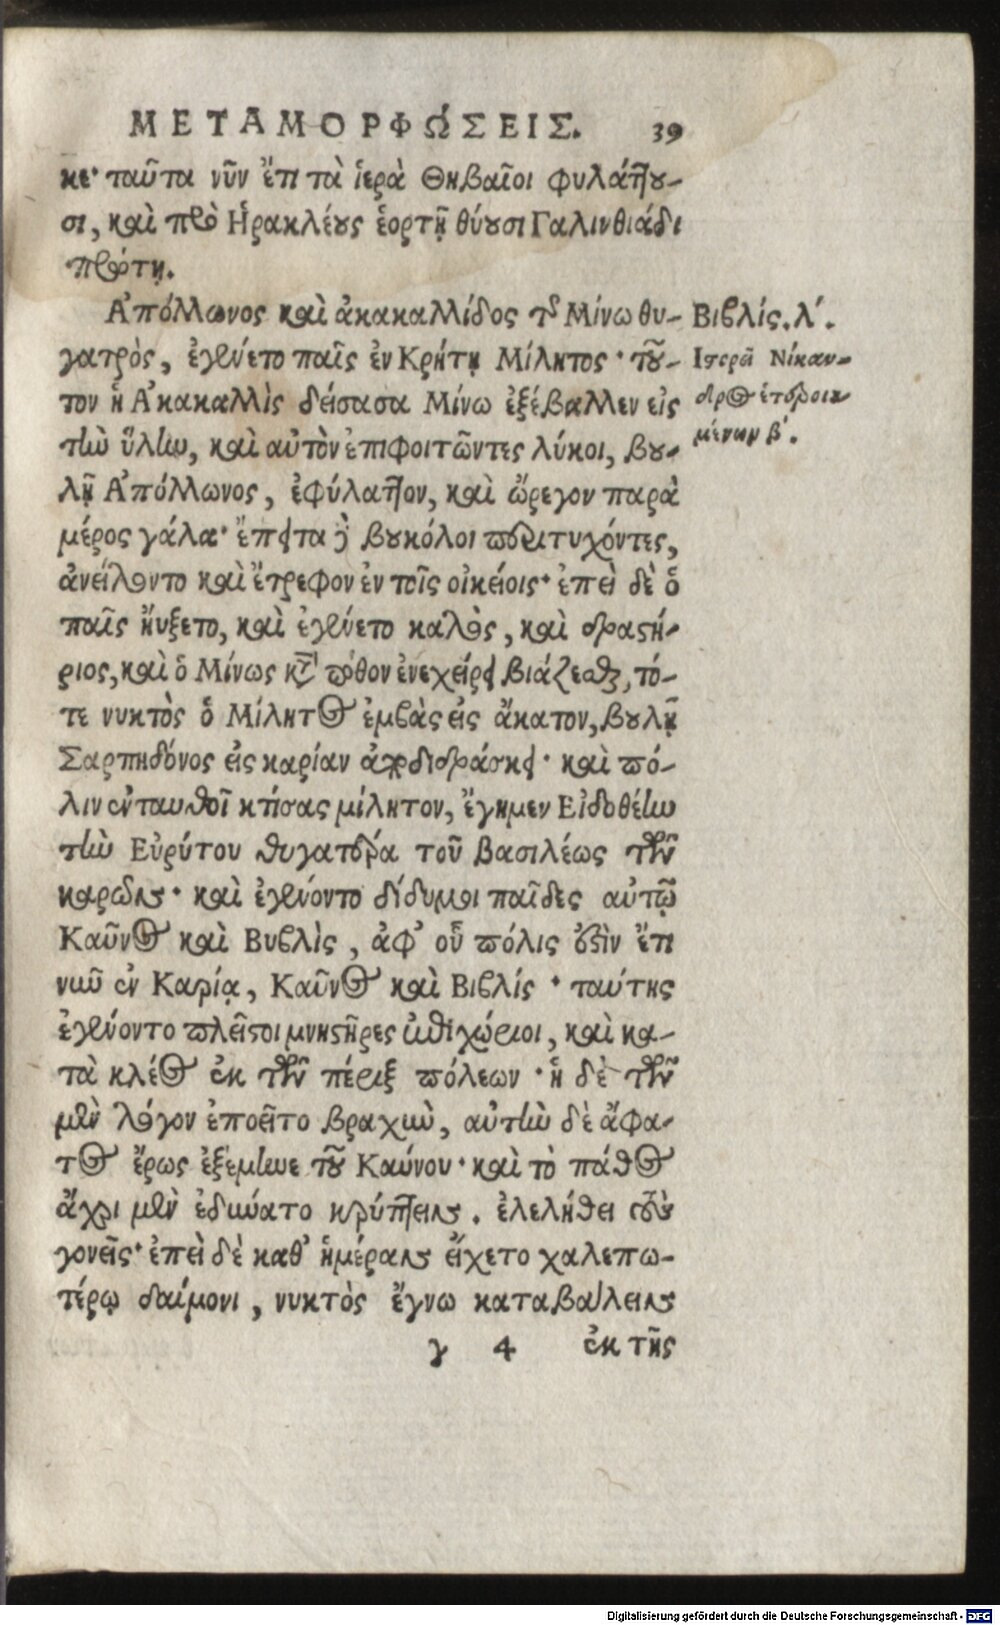 ΜΕΤΑΜΟΡΦΏΣΕΙΣ. 39
κε· ταῦτα νῦν ἔτι τὰ ἱερὰ Θηβαῖοι φυλάττου-
σι, καὶ πρὸ Ἡρακλέους ἑορτῇ θύουσι Γαλινθιάδι
πρώτῃ.
Ἀπόλλωνος καὶ ἀκακαλλίδος τῆς Μίνω θυ-
γατρὸς, ἐγένετο παῖς ἐν Κρήτῃ Μίλητος· τοῦ-
τον ἡ Ἀκακαλλὶς δείσασα Μίνω ἐξέβαλλεν εἰς
τὴν ὕλην, καὶ αὐτὸν ἐπιφοιτῶντες λύκοι, βου-
λῇ Ἀπόλλωνος, ἐφύλαττον, καὶ ὤρεγον παρὰ
μέρος γάλα· ἔπειτα δὲ βουκόλοι περιτυχόντες,
ἀνείλοντο καὶ ἔτρεφον ἐν τοῖς οἰκείοις· ἐπεὶ δὲ ὁ
παῖς ἤυξετο, καὶ ἐγένετο καλὸς, καὶ δραστή-
ριος, καὶ ὁ Μίνως κατὰ πόθον ἐνεχείρει βιάζεσθαι, τό-
τε νυκτὸς ὁ Μίλητος ἐμβὰς εἰς ἄκατον, βουλῇ
Σαρπηδόνος εἰς καρίαν ἀποδιδράσκει· καὶ πό-
λιν ἐνταυθοῖ κτίσας μίλητον, ἔγημεν Εἰδοθέην
τὴν Εὐρύτου θυγατέρα τοῦ βασιλέως τῶν
καρῶν· καὶ ἐγένοντο δίδυμοι παῖδες αὐτῷ
Καῦνος καὶ Βυβλὶς, ἀφ' οὗ πόλις ἐστὶν ἔτι
νῦν ἐν Καρίᾳ, Καῦνος καὶ Βιβλίς· ταύτης
ἐγένοντο πλεῖστοι μνηστῆρες ἐπιχώριοι, καὶ κα-
τὰ κλέος ἐκ τῶν πέριξ πόλεων· ἡ δὲ τῶν
μὲν λόγον ἐποεῖτο βραχὺν, αὐτὴν δὲ ἄφα-
τος ἔρως ἐξέμηνε τοῦ Καύνου· καὶ τὸ πάθος
ἄχρι μὲν ἐδύνατο κρύπτειν. ἐλελήθει τοὺς
γονεῖς· ἐπεὶ δὲ καθ' ἡμέραν εἴχετο χαλεπω-
τέρῳ δαίμονι, νυκτὸς ἔγνω καταβαλεῖν
γ 4 ἐκ τῆς
Βιβλίς. λ΄.
Ἱστορεῖ Νίκαν-
δρος ἑτεροιου-
μένων β΄.